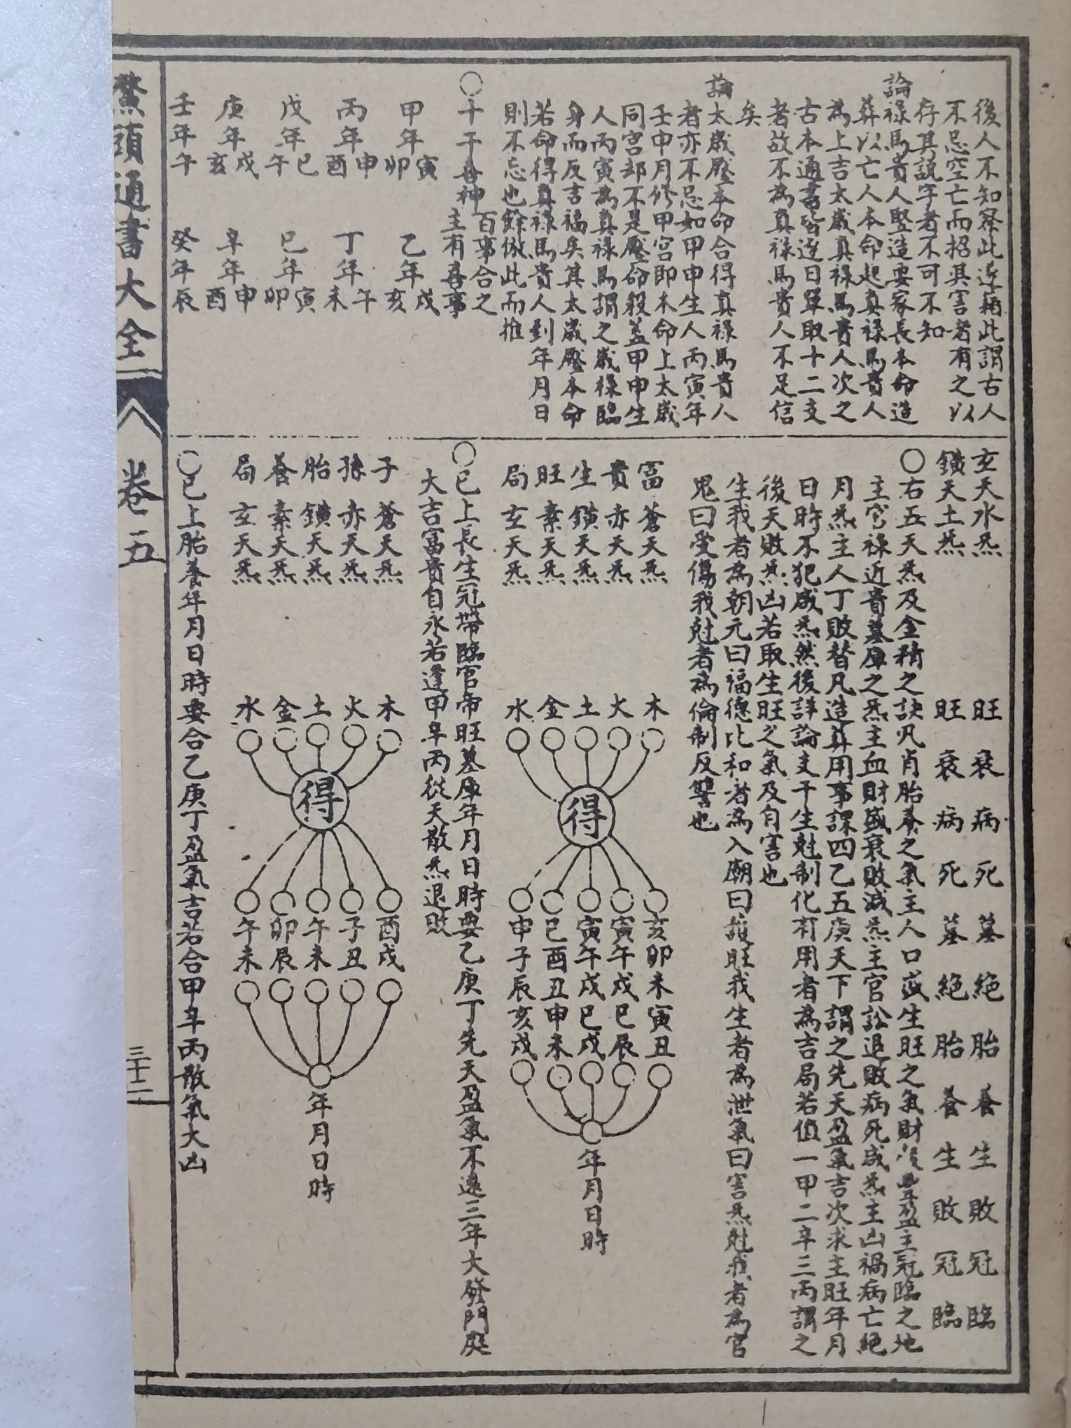 後人不知察此遂藉此謂古人
不忌空亡而招其害者有之以
存其說字者不可不知
論祿馬貴人堅造要家長本命造
葬以亡人本命起真祿馬貴人
為上吉太歲真祿馬貴人次之
古本通書皆逐日單取十二支
者故不為真祿馬貴人不足信
矣
論太歲壓本命合得真祿馬貴人
者亦不忌如甲申生人丙寅年
壬申月修甲宮即本命上太歲
同宮却不是壓命殺蓋甲申生
人丙寅為真祿馬謂之歲祿臨
身而反吉福矣其太歲壓本命
若命得真祿馬貴人到年月日
則不忘也餘倣此而推
○十干喜神 百事合之主有喜事
甲年寅卯 乙年戌亥
丙年申酉 丁年午未
戊年巳午 巳年寅卯
庚年戌亥 辛年申酉
壬年午 癸年辰
玄天水炁 旺衰病死墓絕胎養生敗冠臨
鐄天土炁 旺衰病死墓絕胎養生敗冠臨
○右五天炁及金精之訣凡肖胎養之氣主人口益生旺之氣財豐盈主冠臨之地
主官祿近貴墓庫之炁主血財盛衰敗減炁主官訟退敗病死咸炁主凶禍病亡絕
月炁主人丁敗替凡造葬用事課四乙五庚天下謂之先天盈氣吉次求主旺年月
日時不犯咸炁然後詳論支干生尅制化有用者為吉局若值一甲二辛三丙謂之
後天敗炁凶若取生旺之氣及有害也
生我者為朝元曰福德比和者為入廟曰護旺我生者為泄氣曰害炁尅我者為官
鬼曰受傷我尅者為倫制反讐也
富 蒼天炁 木 亥卯未寅丑
貴 赤天炁 火 寅午戌巳辰
生 鐄天炁 土 寅午戌巳戌
旺 素天炁 金 巳酉丑申未
局 玄天炁 水 申子辰亥戌
得
年月日時
○巳上長生冠帶臨官帝旺墓庫年月日時要乙庚丁先天盈氣不遠三年大發門庭
大吉富貴自永若逢甲辛丙從天散炁退敗
子 蒼天炁 木 酉戌
孫 赤天炁 火 子丑
胎 鐄天炁 土 午未
養 素天炁 金 卯辰
局 玄天炁 水 午未
得
年月日時
○巳上胎養年月日時要合乙庚丁盈氣吉若合甲辛丙散氣大凶
鰲頭通書大全 卷五 三十二